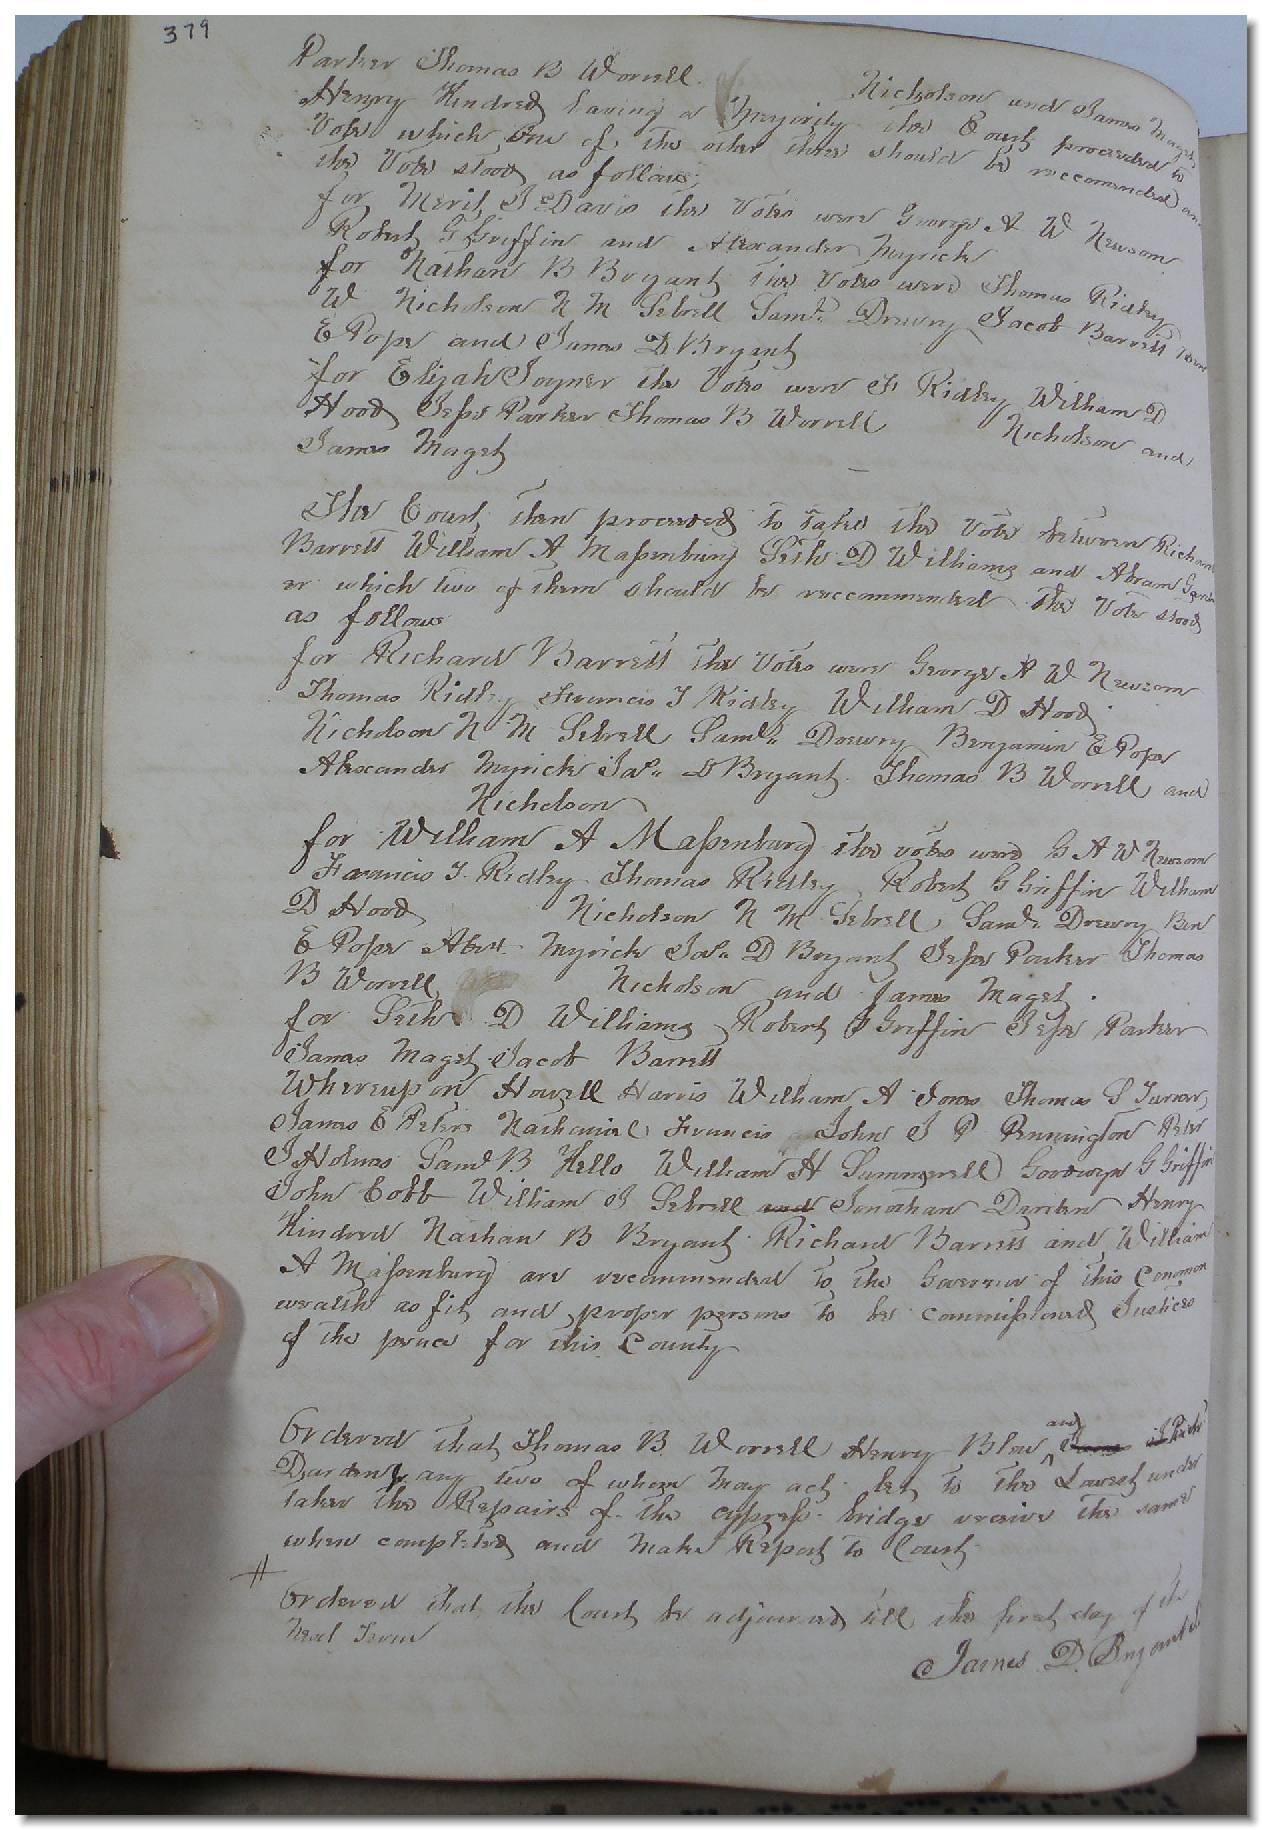 379
Parker Thomas B Worrell Nicholson and James Maget
Henry Kindred having a Majority the Court proceeded to
Vote which one of the other three should be reccomended and
the Vote stood as follows;
for Merit J Davis the Votes were George A W Newsom
Robert G Griffin and Alexander Myrick
for Nathan B Bryant the Votes were Thomas Ridley
W Nicholson N M Sebrell Saml. Drewry Jacob Barrett
E Pope and James D Bryant
for Elijah Joyner the Votes were F Ridley William D
Hood Jesse Parker Thomas B Worrell Nicholson and
James Maget
The Court then proceeded to take the Vote between Richard
Barrett William A Massenburg Seth D Williams and Abram
er which two of them should be reccommended the Vote stood
as follows
for Richard Barrett the Votes were George A W Newsom
Thomas Ridley Francis T Ridley William D Hood
Nicholson N M Sebrell Saml. Drewry Benjamin E Pope
Alexander Myrick Jas. D Bryant Thomas B Worrell and
Nicholson
for William A Massenburg the votes were G A W Newsom
Francis T. Ridley Thomas Ridley Robert G Griffin William
D Hood Nicholson N M Sebrell, Saml. Drewry Ben
E Pope Alexr. Myrick Jas. D Bryant Jesse Parker Thomas
B Worrell Nicholson and James Maget.
for Seth D Williams Robert G Griffin Jesse Parker
James Maget Jacob Barrett
Whereupon Howell Harris William A Jones Thomas S Turner,
James E Peters Nathaniel Francis John J P Pennington Peter
J Holmes Saml B Hello William H Summerell Goodwyn G Griffin
John Cobb William J Sebrell and Jonathan Darden Henry
Kindred Nathan B Bryant Richard Barrett and William
A Massenburg are recommended to the Governor of this Common
wealth as fit and proper persons to be commissioned Justices
of the peace for this County
Ordered that Thomas B Worrell Henry Blow and
Darden any two of whom may act let to the Lowest under
taker the Repairs of the cypress bridge receive the same
when completed and make Report to Court
Ordered that the Court be adjourned till the first day of the
Next Term
James D. Bryant